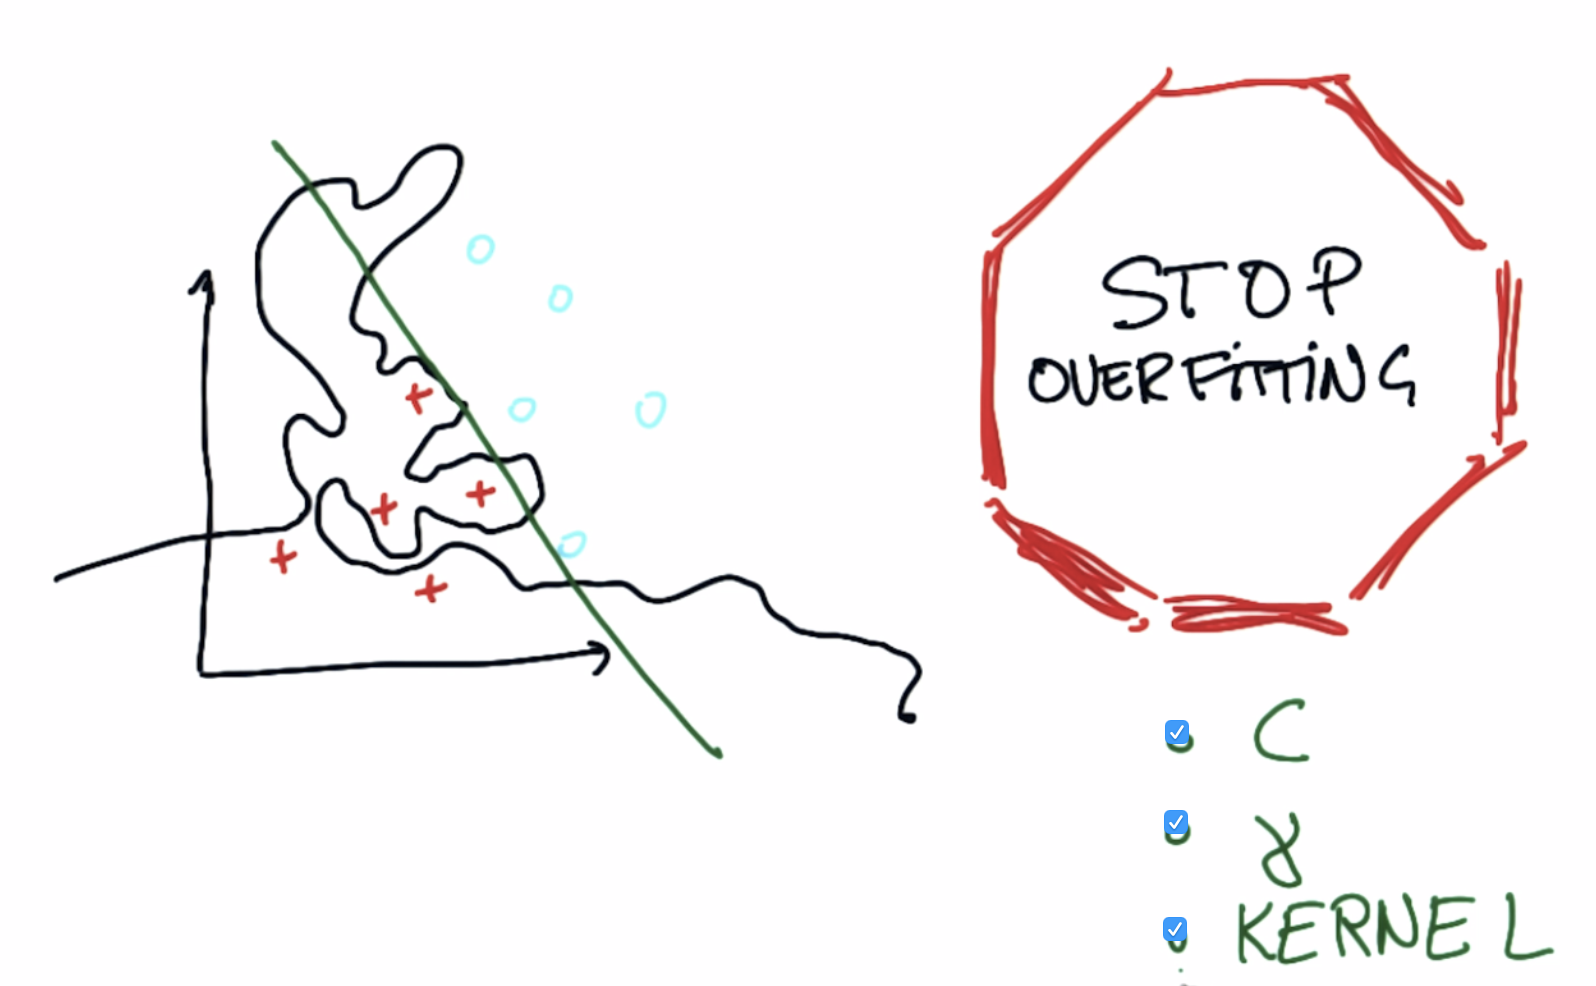 STOP
OVERFITTING
C
γ
KERNEL